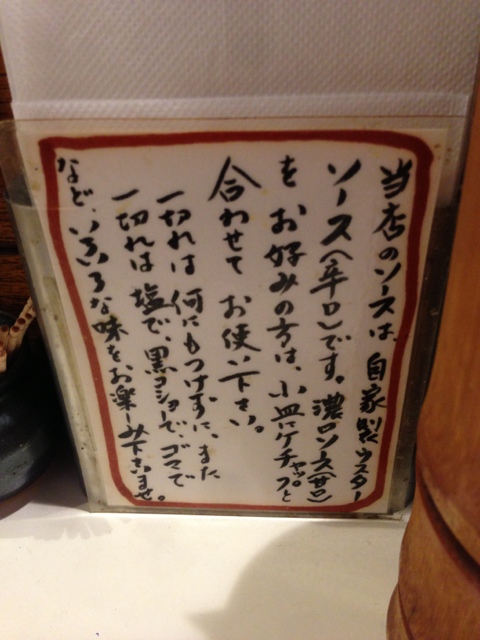 当店のソースは、自家製ウスター
ソース(辛口)です。濃口ソース(甘口)
を お好みの方は、小皿にケチャップと
合わせて お使い下さい。
一切れは 何にもつけずに、また
一切れは 塩で、黒コショーで、ゴマで
など、いろいろな味をお楽しみ下さいませ。